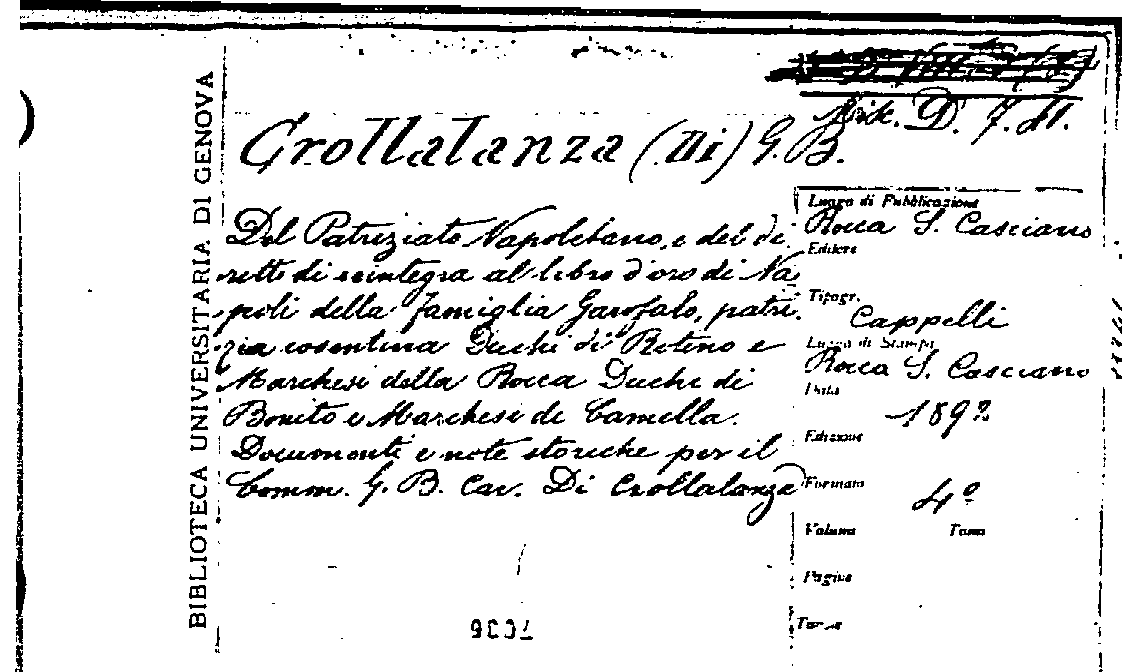 BIBLIOTECA UNIVERSITARIA DI GENOVA
Misc. D. 7. 41.
Crollalanza (Di) G. B.
Del Patriziato Napoletano, e del di
ritto di reintegra al libro d'oro di Na
poli della famiglia Garofalo, patri
zia cosentina Duchi di Rotino e
Marchesi della Rocca Duchi di
Bonito e Marchesi di Camella.
Documenti e note storiche per il
Comm. G. B. Cav. Di Crollalanza
Luogo di Pubblicazione
Rocca S. Casciano
Editore
Tipogr.
Cappelli
Luogo di Stampa
Rocca S. Casciano
Data
1892
Edizione
Formato
4º
Volume Tomo
Pagine